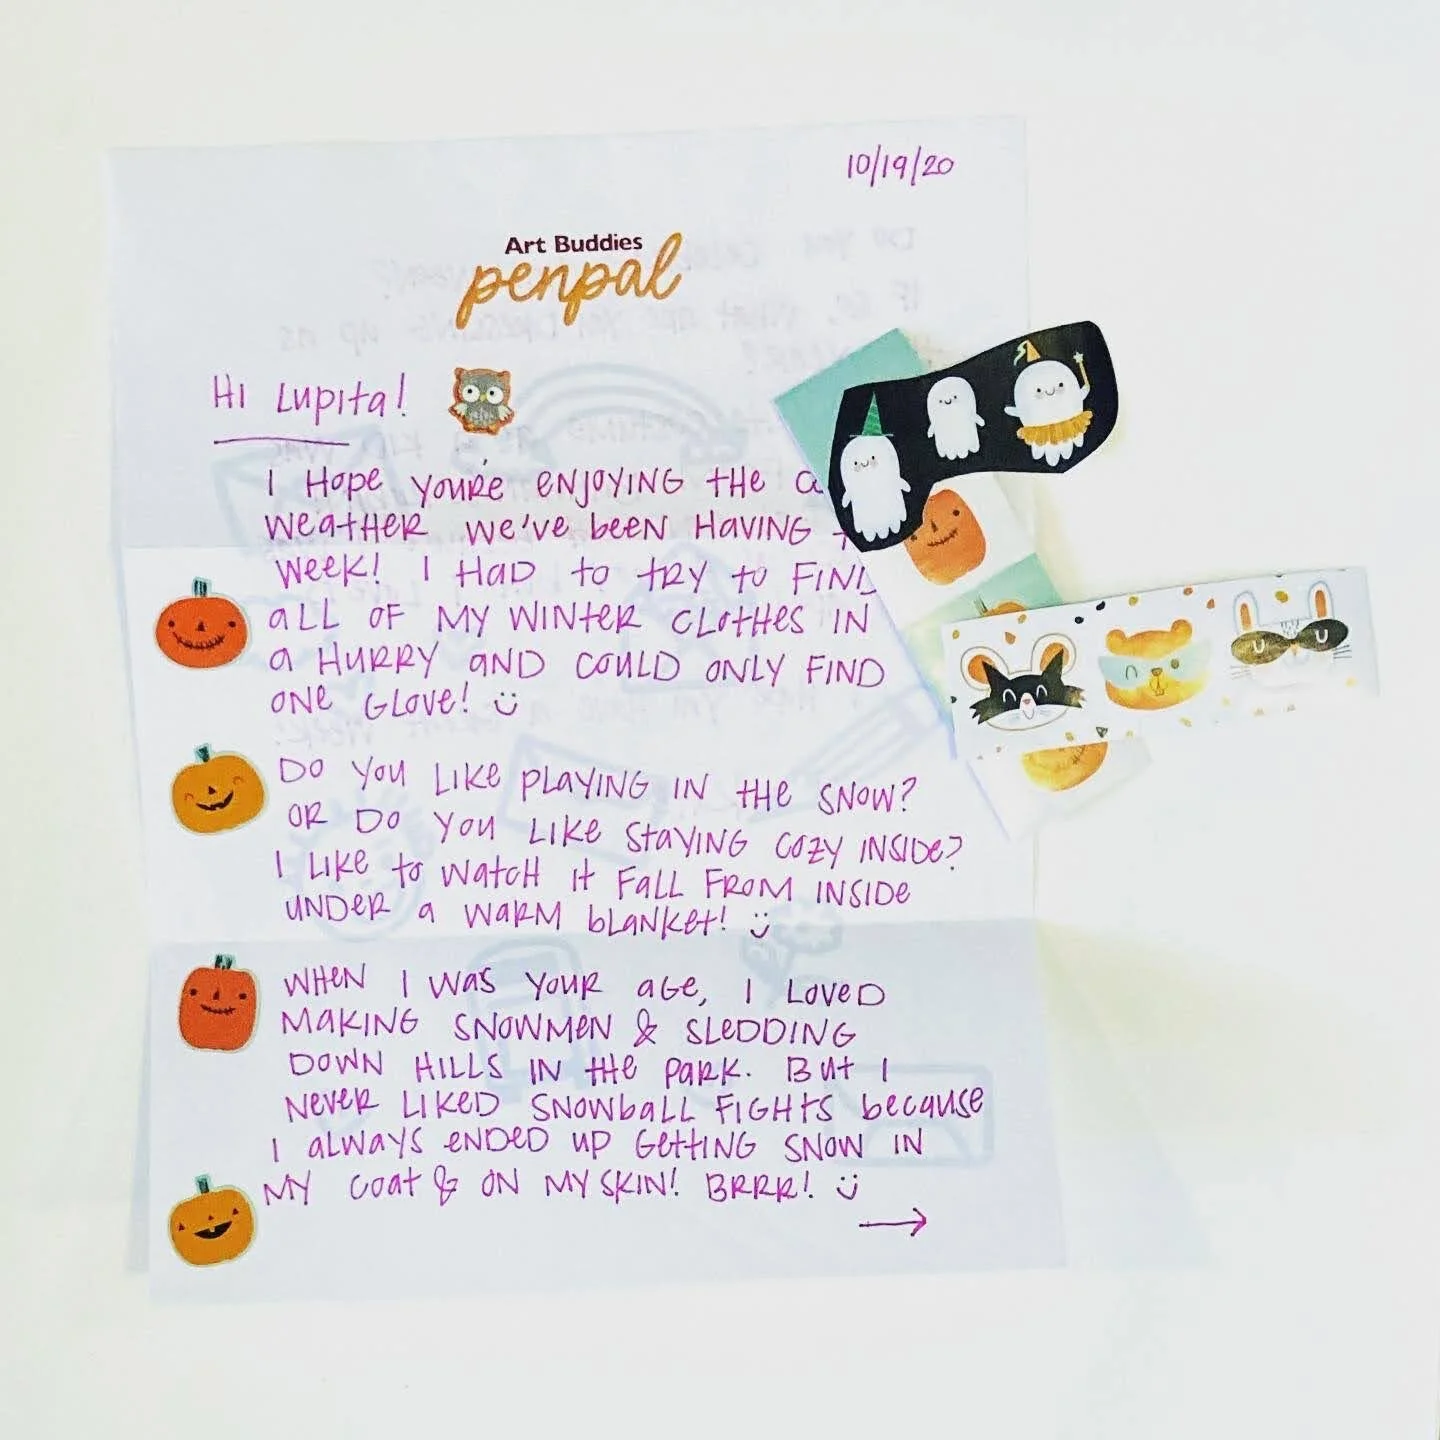 10/19/20
Art Buddies
penpal
Hi Lupita!
I Hope you're enjoying the
weather we've been having
week! I had to try to find
all of my winter clothes in
a hurry and could only find
one glove! :)
Do you like playing in the snow?
or do you like staying cozy inside?
I like to watch it fall from inside
under a warm blanket! :)
When I was your age, I loved
making snowmen & sledding
down hills in the park. But I
never liked snowball fights because
I always ended up getting snow in
my coat & on my skin! Brrr! :)
→